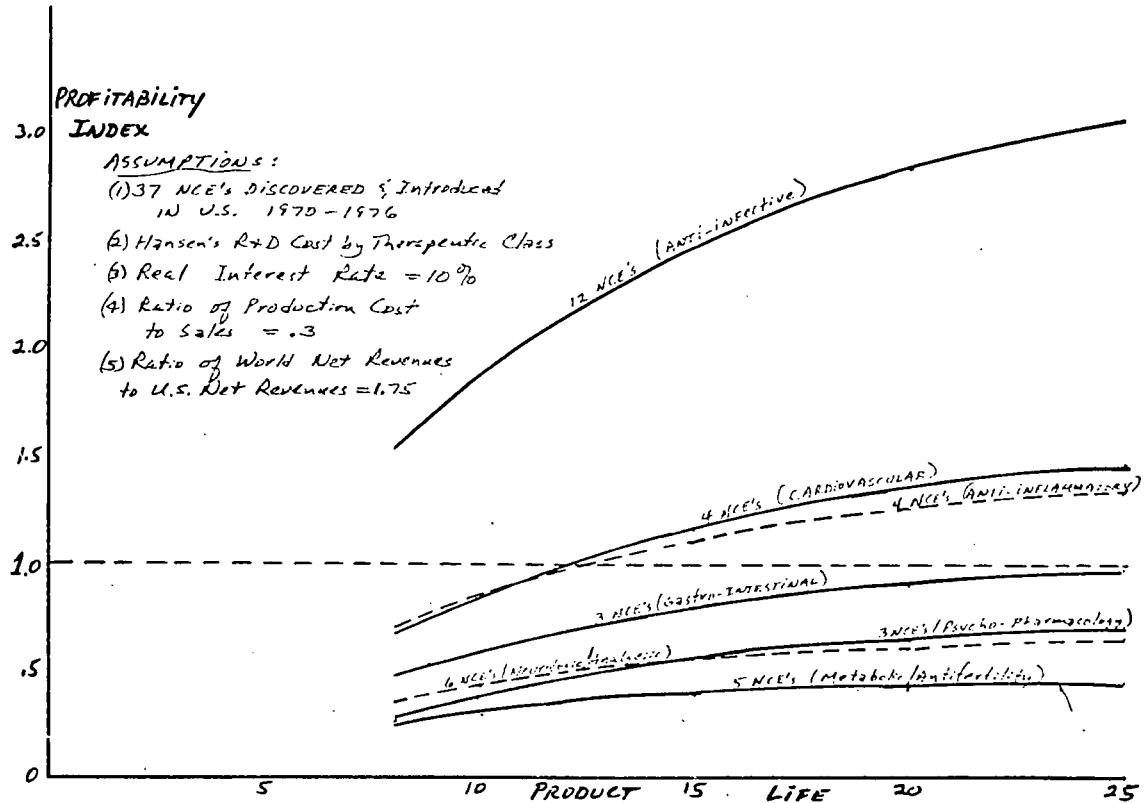 PROFITABILITY
INDEX
3.0
ASSUMPTIONS:
(1) 37 NCE's DISCOVERED & Introduced
IN U.S. 1970-1976
(2) Hansen's R+D Cost by Therapeutic Class
(3) Real Interest Rate = 10%
(4) Ratio of Production Cost
to Sales = .3
(5) Ratio of World Net Revenues
to U.S. Net Revenues = 1.75
2.5
2.0
1.5
1.0
.5
0
12 NCE's (ANTI-INFECTIVE)
4 NCE's (CARDIOVASCULAR)
4 NCE's (ANTI-INFLAMMATORY)
3 NCE's (Gastro-INTESTINAL)
3 NCE's (Psycho-Pharmacology)
6 NCE's (Neurologic/Analgesic)
5 NCE's (Metabolic/Antifertility)
5 10 PRODUCT 15 LIFE 20 25